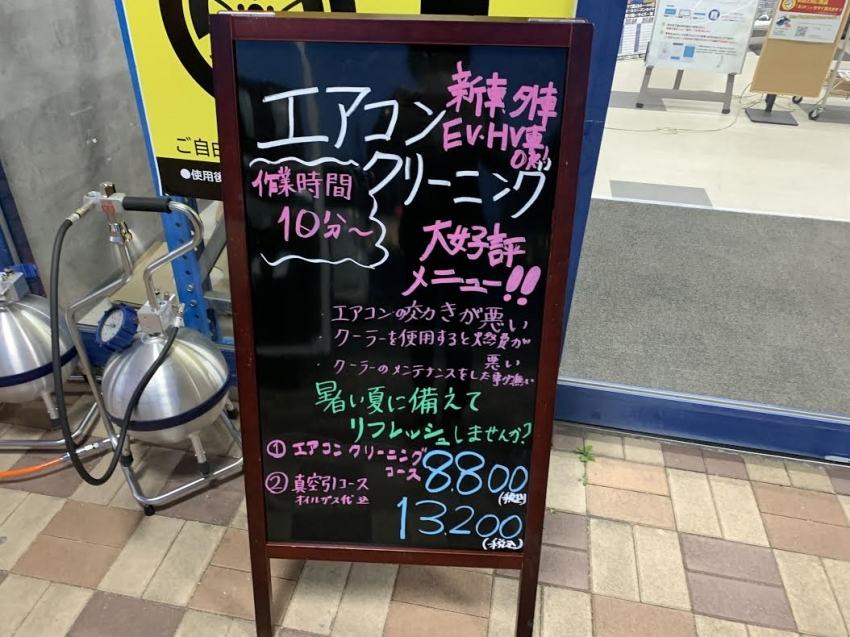 新車 外車
EV・HV車
OK!!
エアコン
クリーニング
作業時間
10分～
大好評
メニュー!!
・エアコンの効きが悪い
・クーラーを使用すると燃費が
悪い
・クーラーのメンテナンスをした事が無い
暑い夏に備えて
リフレッシュしませんか?
① エアコンクリーニング
コース
8.800
(税込)
② 真空引コース
オイルガス代込
13.200
(税込)
ご自由
●使用後